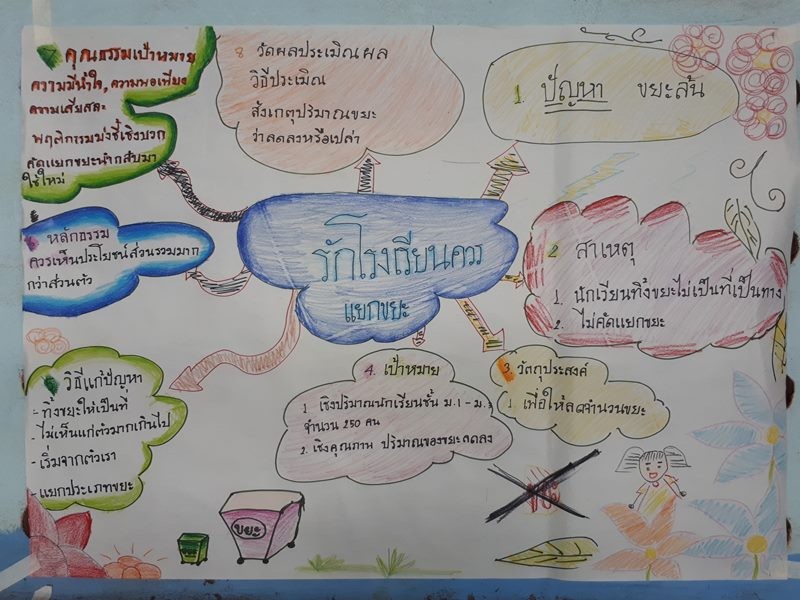 รักโรงเรียนควร
แยกขยะ
1. ปัญหา ขยะล้น
2 สาเหตุ
1. นักเรียนทิ้งขยะไม่เป็นที่เป็นทาง
2. ไม่คัดแยกขยะ
3. วัตถุประสงค์
1 เพื่อให้ลดจำนวนขยะ
4. เป้าหมาย
1. เชิงปริมาณนักเรียนชั้น ม.1 - ม.3
จำนวน 250 คน
2. เชิงคุณภาพ ปริมาณของขยะลดลง
วิธีแก้ปัญหา
- ทิ้งขยะให้เป็นที่
- ไม่เห็นแก่ตัวมากเกินไป
- เริ่มจากตัวเรา
- แยกประเภทขยะ
หลักธรรม
ควรเห็นประโยชน์ส่วนรวมมาก
กว่าส่วนตัว
7 คุณธรรมเป้าหมาย
ความมีน้ำใจ, ความพอเพียง
ความเสียสละ
พฤติกรรมบ่งชี้เชิงบวก
คัดแยกขยะนำกลับมา
ใช้ใหม่
8 วัดผลประเมินผล
วิธีประเมิน
สังเกตุปริมาณขยะ
ว่าลดลงหรือเปล่า
ขยะ